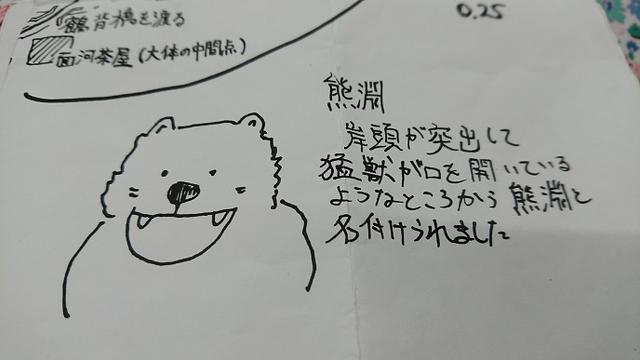 鶴背橋を渡る
0.25
面河茶屋(大体の中間点)
熊淵
岸頭が突出して
猛獣が口を開いている
ようなところから熊淵と
名付けられました